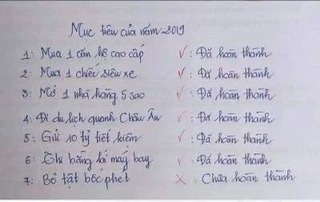 Mục tiêu của năm 2019
1: Mua 1 căn hộ cao cấp ✓: Đã hoàn thành
2: Mua 1 chiếc siêu xe ✓: Đã hoàn thành
3: Mở 1 nhà hàng 5 sao ✓: Đã hoàn thành
4: Đi du lịch quanh Châu Âu ✓: Đã hoàn thành
5: Gửi 10 tỷ tiết kiệm ✓: Đã hoàn thành
6: Thi bằng lái máy bay ✓: Đã hoàn thành
7: Bỏ tật bốc phét ✗: Chưa hoàn thành